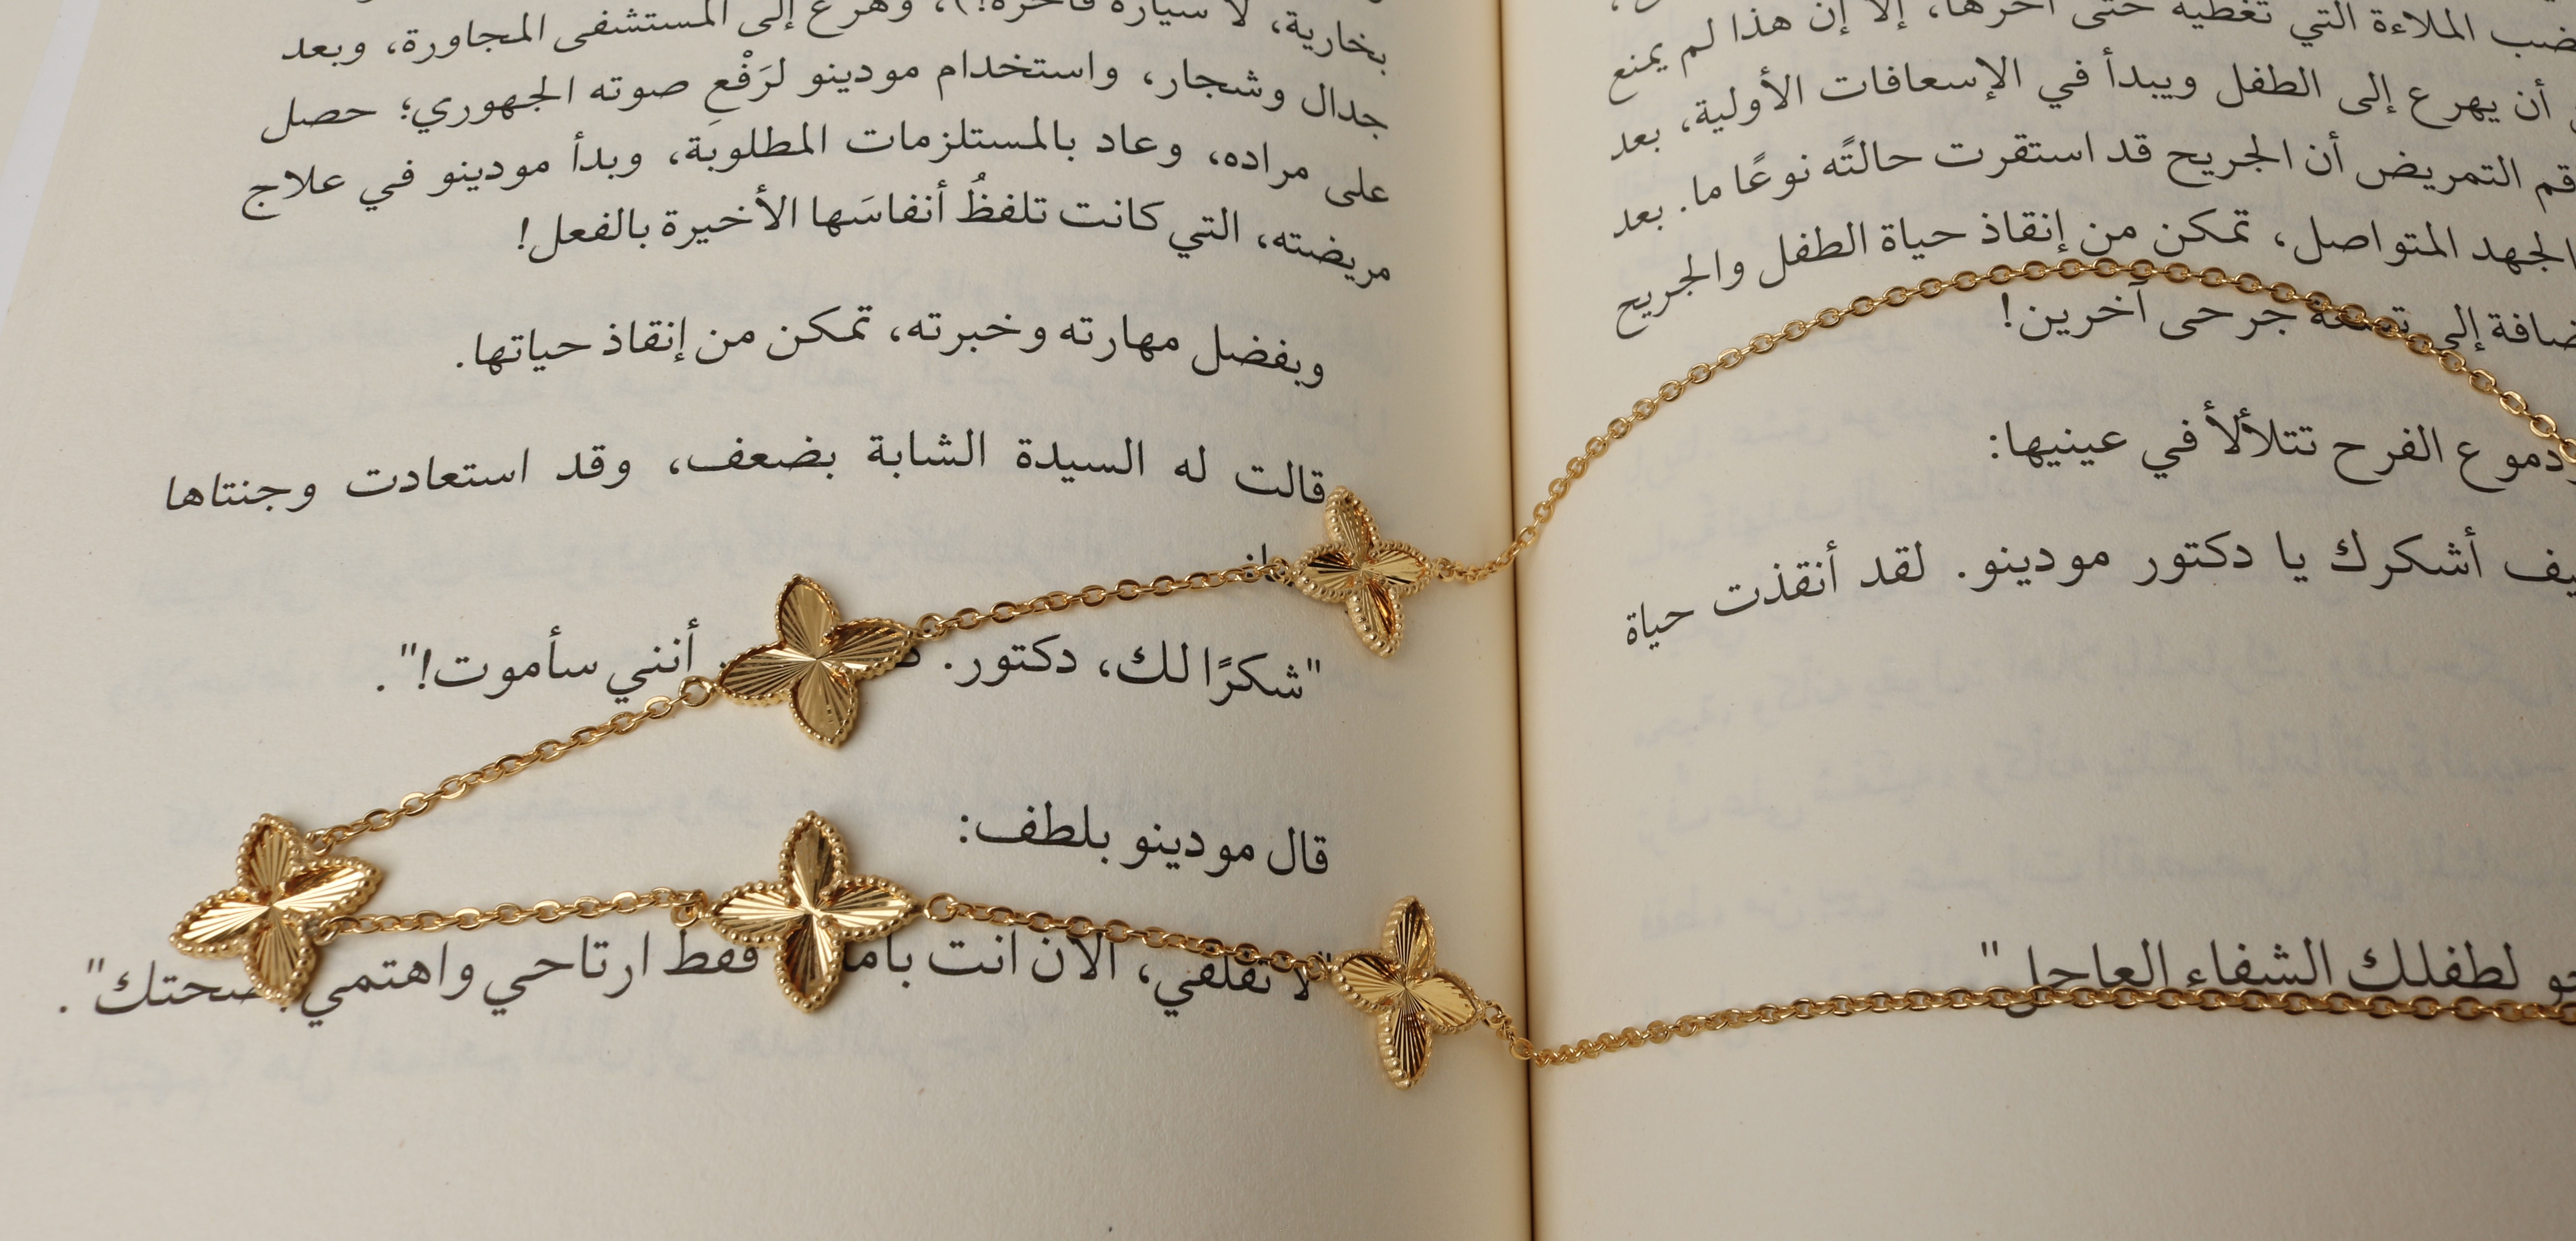 الملاءة التي تغطيه حتى آخرها، إلا إن هذا لم يمنع
أن يهرع إلى الطفل ويبدأ في الإسعافات الأولية، بعد
التمريض أن الجريح قد استقرت حالتًه نوعًا ما. بعد
الجهد المتواصل، تمكن من إنقاذ حياة الطفل والجريح
إلى تسعة جرحى آخرين!
دموع الفرح تتلألأ في عينيها:
أشكرك يا دكتور مودينو. لقد أنقذت حياة
لطفلك الشفاء العاجل"
بخارية، لا سيارة فاخرة!)، وهرع إلى المستشفى المجاورة، وبعد
جدال وشجار، واستخدام مودينو لرَفْعِ صوته الجهوري؛ حصل
على مراده، وعاد بالمستلزمات المطلوبة، وبدأ مودينو في علاج
مريضته، التي كانت تلفظُ أنفاسَها الأخيرة بالفعل!
وبفضل مهارته وخبرته، تمكن من إنقاذ حياتها.
قالت له السيدة الشابة بضعف، وقد استعادت وجنتاها
"شكرًا لك، دكتور. أنني سأموت!".
قال مودينو بلطف:
"لا تقلقي، الآن أنت فقط ارتاحي واهتمي بصحتك".